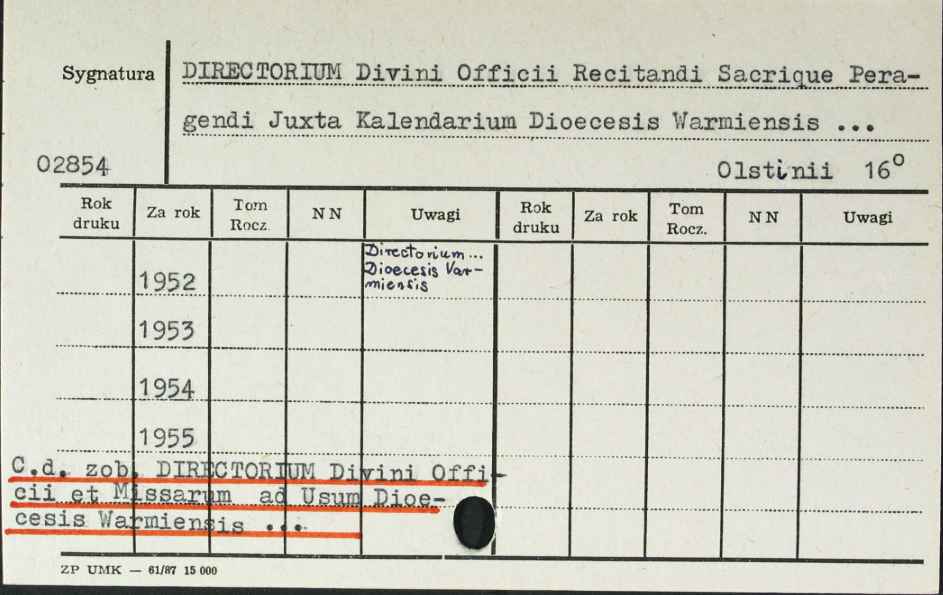 Sygnatura DIRECTORIUM Divini Officii Recitandi Sacrique Pera-
gendi Juxta Kalendarium Dioecesis Warmiensis ...
02854 Olstinii 16°
Rok druku Za rok Tom Rocz. NN Uwagi Rok druku Za rok Tom Rocz. NN Uwagi
Directorium...
Dioecesis Var-
1952 miensis
1953
1954
1955
C.d. zob. DIRECTORIUM Divini Offi-
cii et Missarum ad Usum Dioe-
cesis Warmiensis ...
ZP UMK — 61/87 15 000